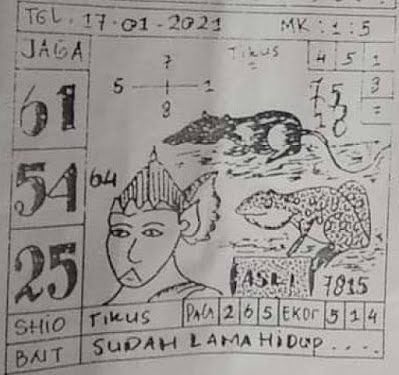 TGL. 17-01-2021 MK: 1: 5
JAGA
7
5 1
8
Tikus
4 5 1
61
75
18
8
7
54
64
25
ASLI 7815
SHIO TIKUS PALA 2 6 5 EKOR 5 1 4
BNT SUDAH LAMA HIDUP ....